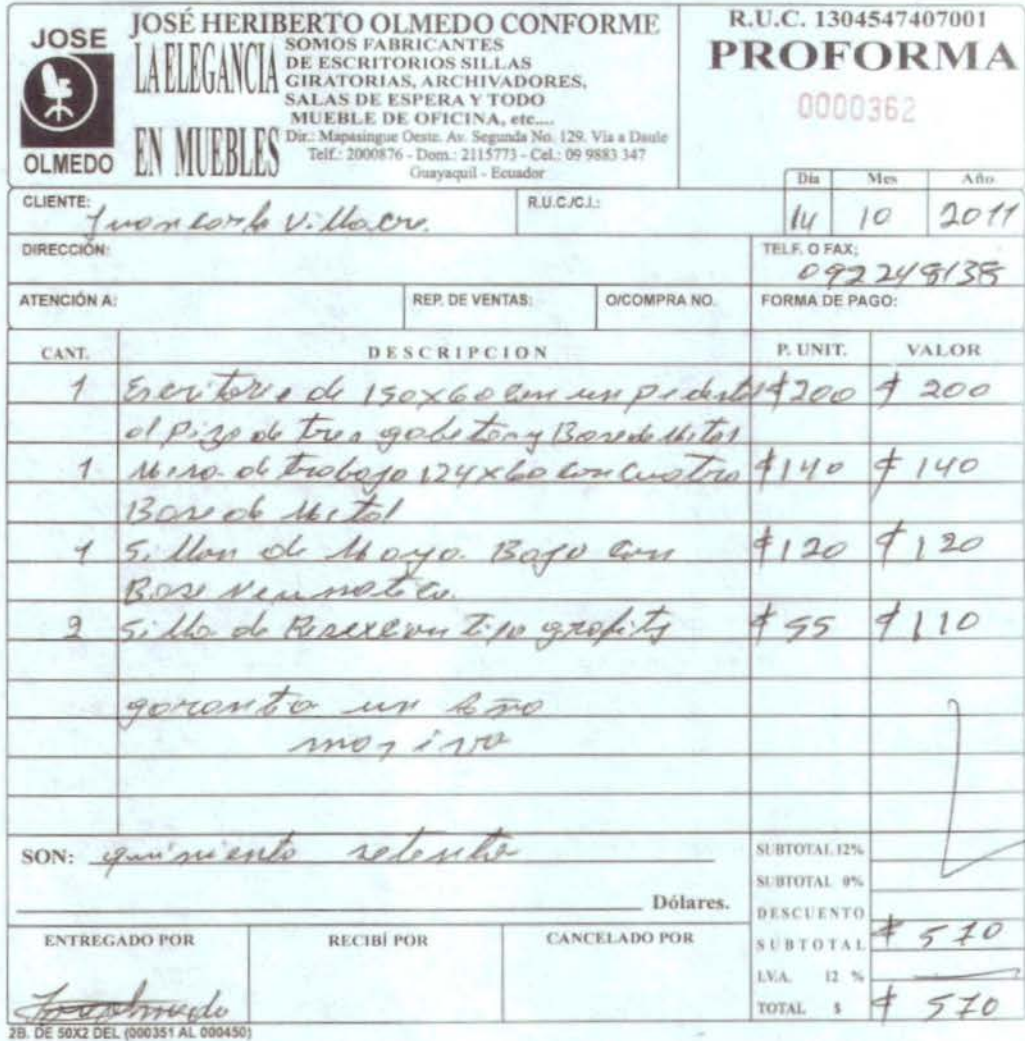 JOSE
OLMEDO
JOSÉ HERIBERTO OLMEDO CONFORME
LA ELEGANCIA
EN MUEBLES
SOMOS FABRICANTES
DE ESCRITORIOS SILLAS
GIRATORIAS, ARCHIVADORES,
SALAS DE ESPERA Y TODO
MUEBLE DE OFICINA, etc....
Dir.: Mapasingue Oeste. Av. Segunda No. 129. Via a Daule
Telf.: 2000876 - Dom.: 2115773 - Cel.: 09 9883 347
Guayaquil - Ecuador
R.U.C. 1304547407001
PROFORMA
0000362
Día Mes Año
14 10 2011
CLIENTE: Juan Carlo Villacre.
R.U.C./C.I.:
DIRECCIÓN:
TELF. O FAX:
092248138
ATENCIÓN A: REP. DE VENTAS: O/COMPRA NO. FORMA DE PAGO:
CANT. DESCRIPCION P. UNIT. VALOR
1 Escritorio de 150x60 con un pedestal $200 $ 200
al pizo de tres gabetas y Base de Metal
1 Mesa de trabajo 124x60 con cuatro $140 $ 140
Base de Metal
1 Sillon de Maya Bajo con $120 $120
Base Neumatica
2 Silla de tipo grafity $ 55 $110
garantia un año
SON: quiniento setenta
Dólares.
SUBTOTAL 12%
SUBTOTAL 0%
DESCUENTO
SUBTOTAL $ 570
I.V.A. 12 %
TOTAL $ $ 570
ENTREGADO POR RECIBÍ POR CANCELADO POR
2B. DE 50X2 DEL (000351 AL 000450)